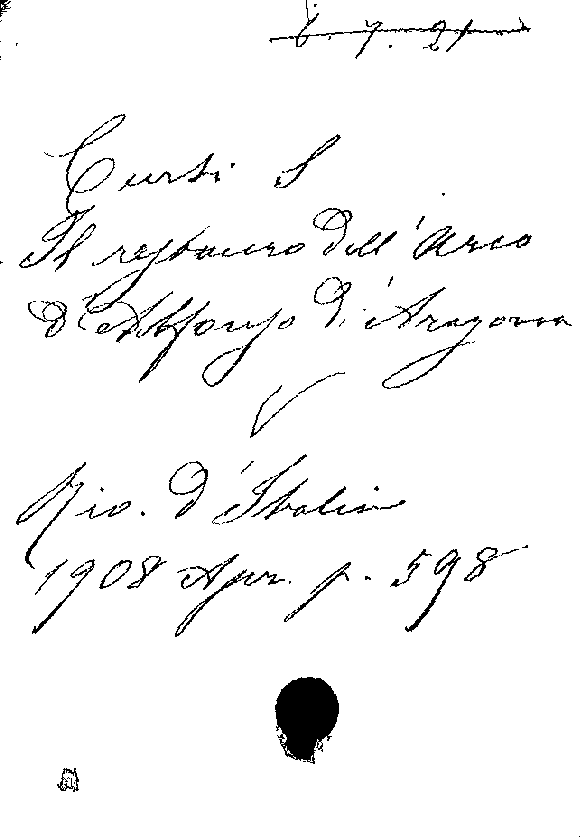 6. 7. 21
Curti S
Il restauro dell' Arco
d'Alfonso d'Aragona
Riv. d'Italia
1908 Apr. p. 598